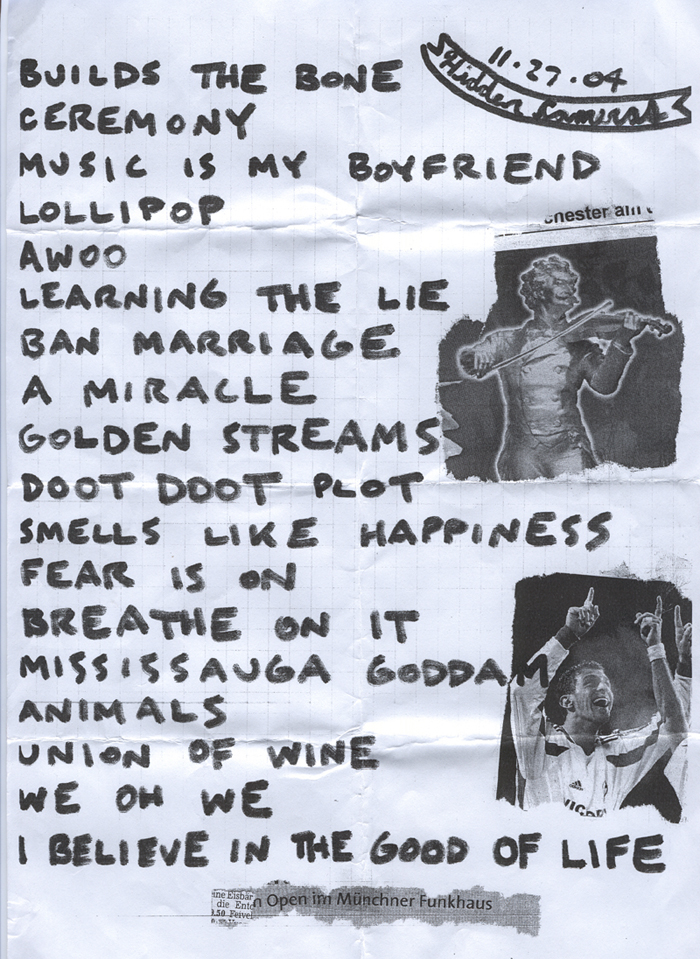 11.27.04
Hidden Cameras
BUILDS THE BONE
CEREMONY
MUSIC IS MY BOYFRIEND
LOLLIPOP
AWOO
LEARNING THE LIE
BAN MARRIAGE
A MIRACLE
GOLDEN STREAMS
DOOT DOOT PLOT
SMELLS LIKE HAPPINESS
FEAR IS ON
BREATHE ON IT
MISSISSAUGA GODDAM
ANIMALS
UNION OF WINE
WE OH WE
I BELIEVE IN THE GOOD OF LIFE
ine Eisbär
die Ente
n Open im Münchner Funkhaus